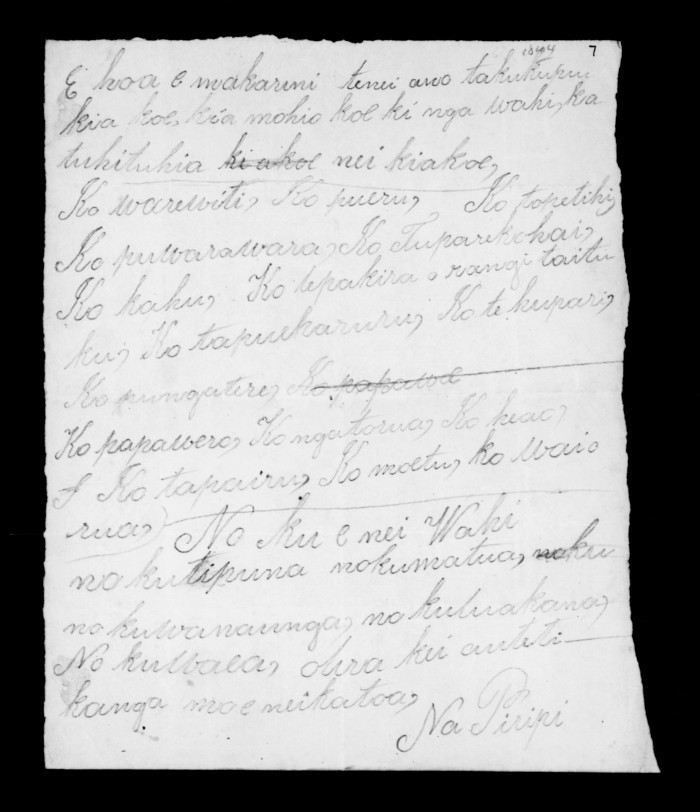 1844 7
E hoa e makarini tenei ano takukupu
kia koe, kia mohio koe ki nga wahi, ka
tuhituhia ki a koe nei kiakoe,
Ko warewiti, Ko pueru, Ko topetihi,
Ko puwarawara, Ko Tuparekohai,
Ko kahu, Ko tepakira o rangi taitu
ku, Ko tapuekaruru, Ko te kupari,
Ko pungatere, Ko papawe
Ko papawero, Ko ngatorua, Ko heao,
Ko tapairu, Ko moetu, ko Waio
rua,
No ku e nei Wahi
no kutipuna nokumatua, noku
no kuwanaunga, no kutuakana,
No kuwaea, otira kei auteti
kanga mo e neikatoa,
Na Piripi